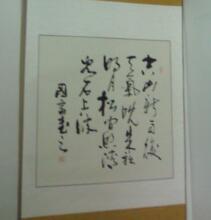 空山新雨後
天氣晚來秋
明月松間照清
泉石上流
書之